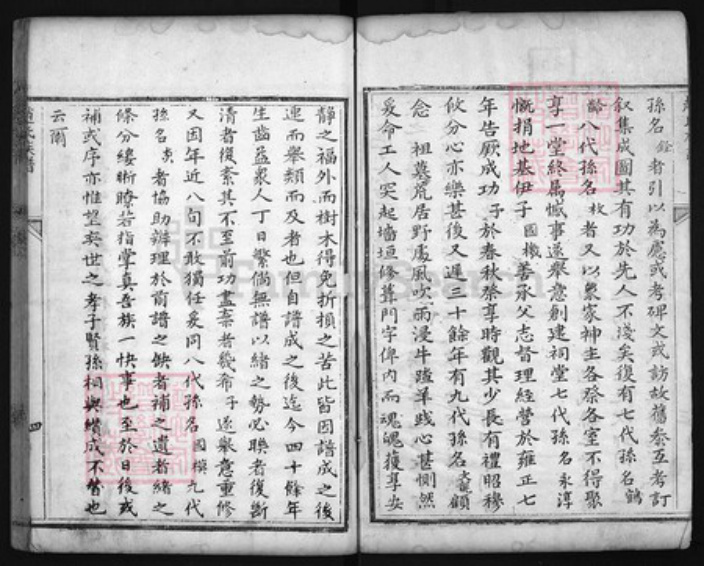 孫名銓者引以為應或考碑文或訪故舊叅互考訂
叙集成圖其有功於先人不淺矣復有七代孫名鶴
齡八代孫名枚者又以衆家神主各祭各室不得聚
享一堂終属憾事遂舉意創建祠堂七代孫名永淳
慨捐地基伊子國機善承父志督理經營於雍正七
年告厥成功子於春秋祭享時觀其少長有禮昭穆
攸分心亦樂甚後又遲三十餘年有九代孫名顧
念祖墓荒居野處風吹雨浸牛踏羊践心甚惻然
爰命工人突起墻垣修葺門字俾内而魂魄獲享安
靜之福外而樹木得免折損之苦此皆因譜成之後
連而舉類而及者也但自譜成之後迄今四十餘年
生齒益衆人丁日繁倘無譜以緒之勢必聯者復斷
清者復紊其不至前功盡棄者幾希子遂舉意重修
又因年近八旬不敢獨任爰同八代孫名國模九代
孫名者協助辦理於前譜之缺者補之遺者緒之
條分縷晰瞭若指掌真吾族一快事也至於日後或
補或序亦惟望奕世之孝子賢孫相與纘成不替也
云爾
氏族譜
四
FamilySearch